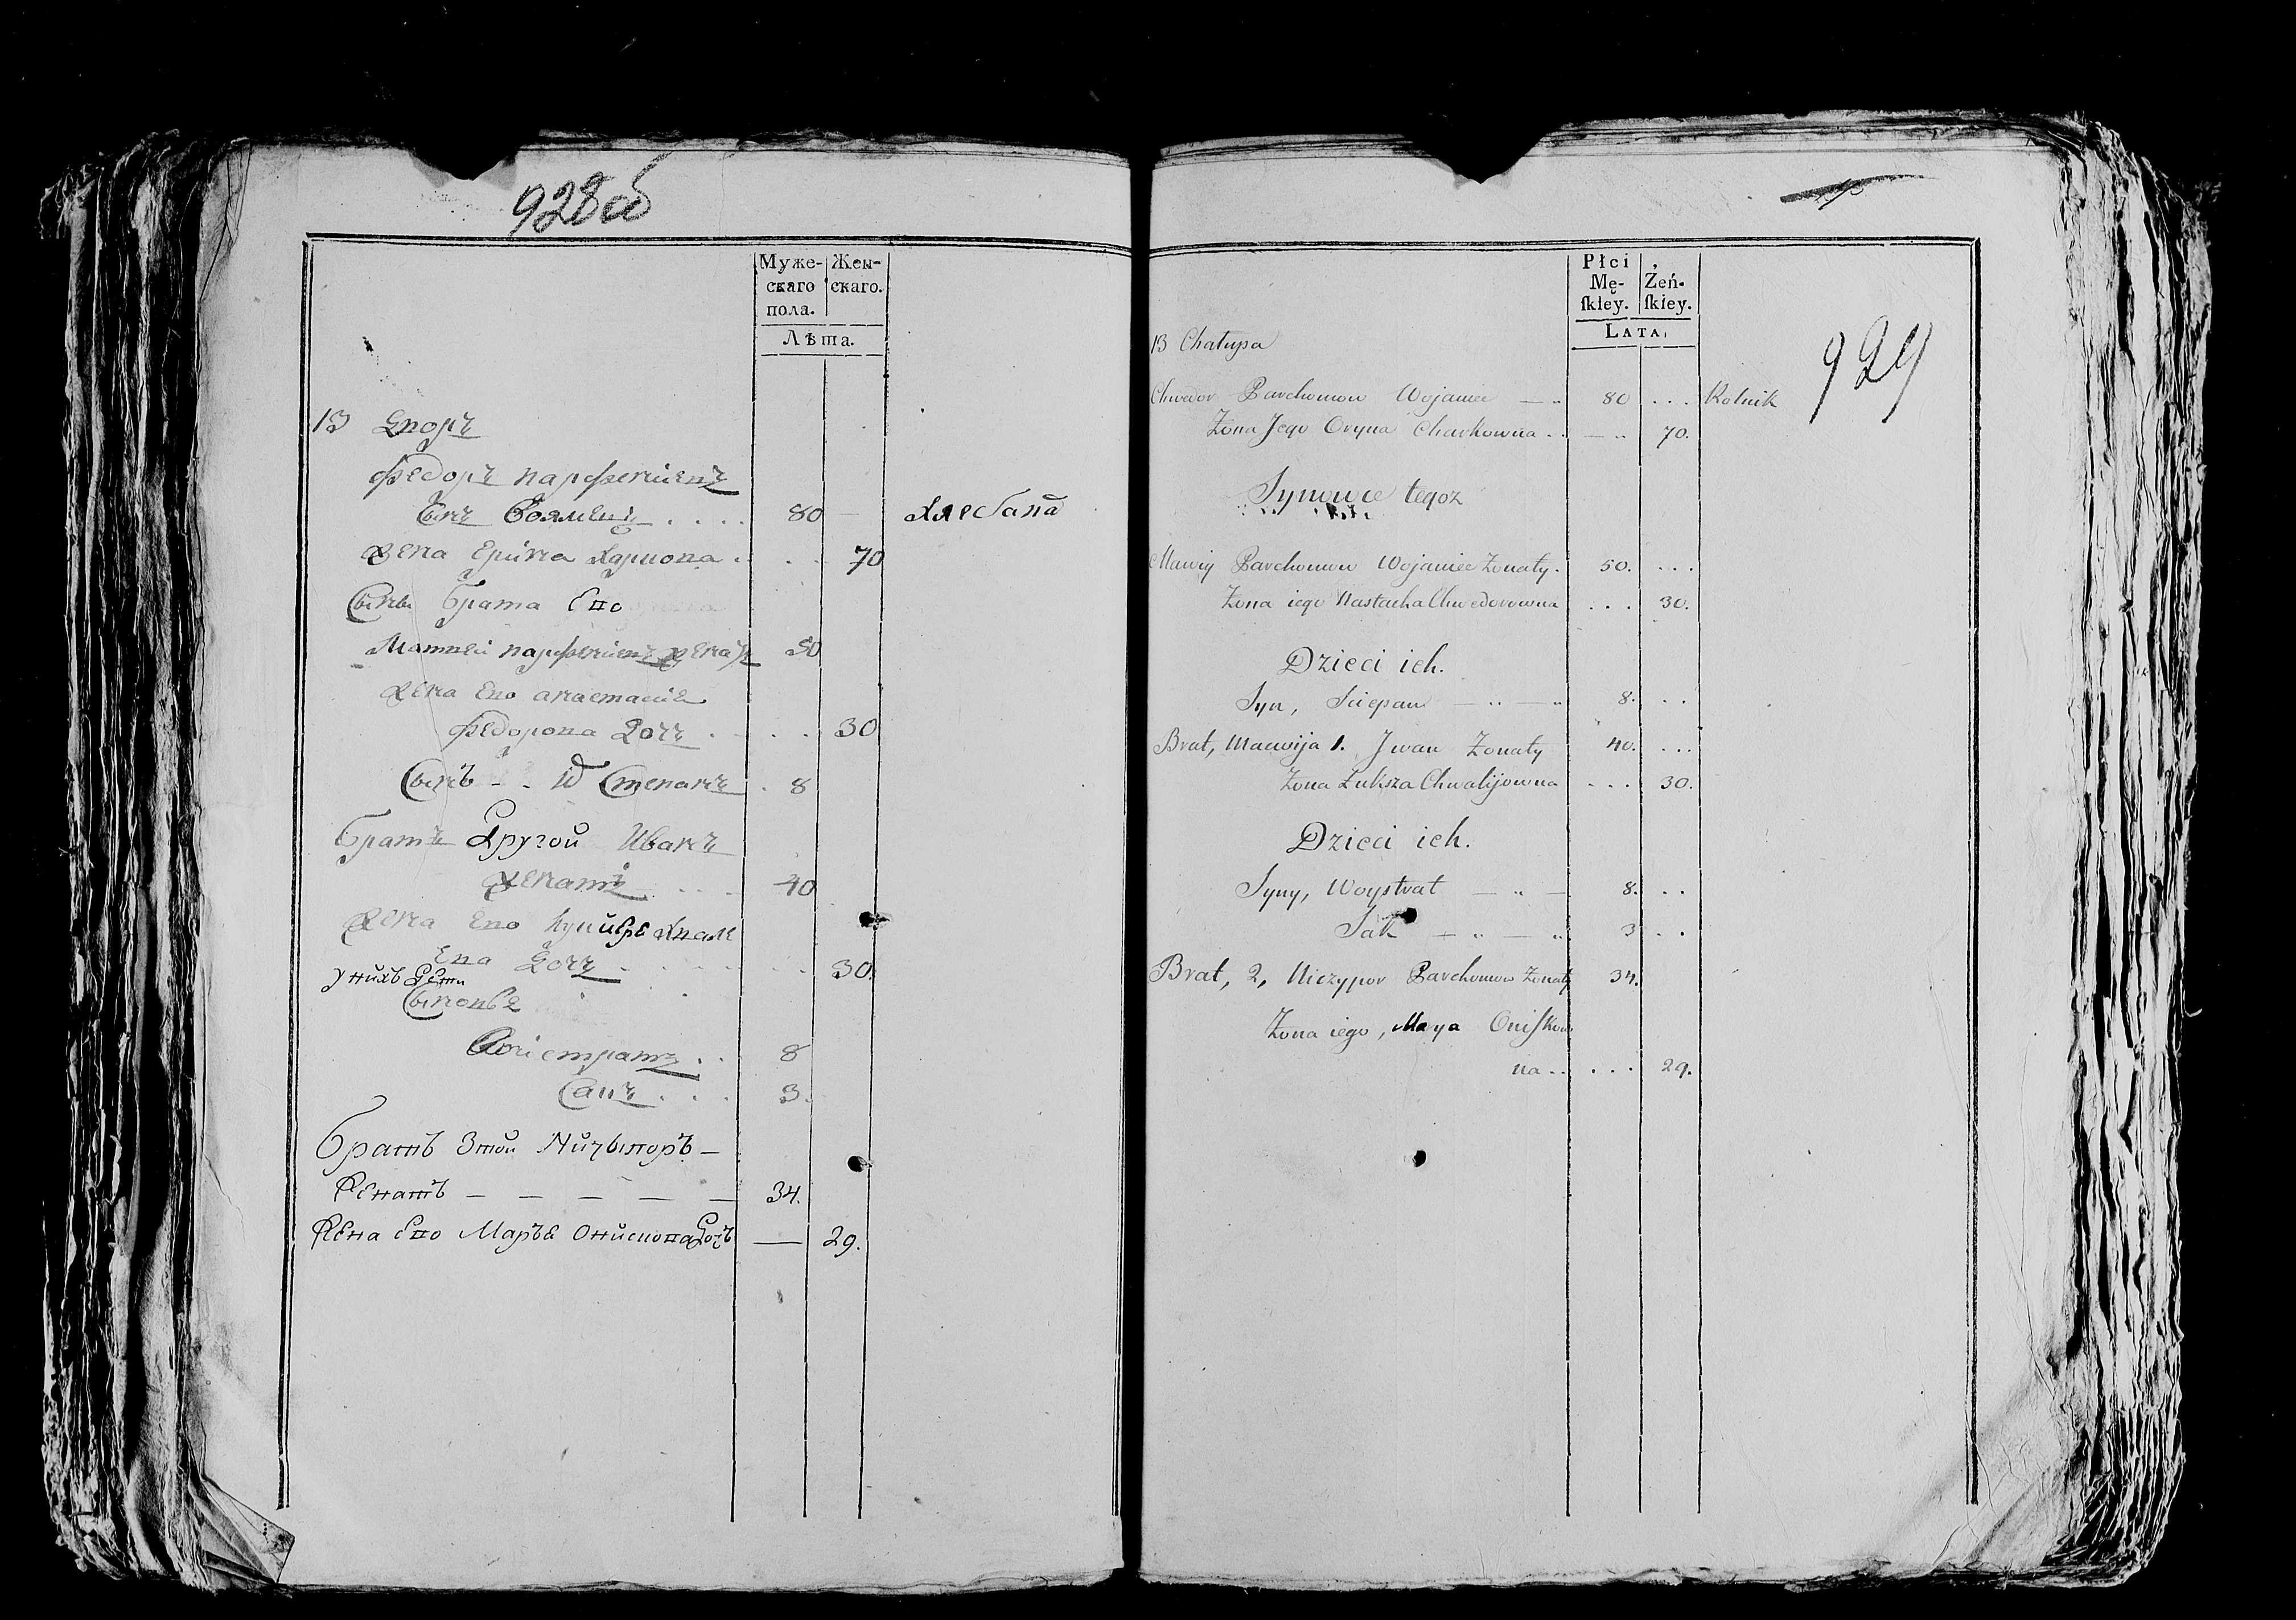 928об
Муже-
скаго
пола.
Жен-
скаго.
Лѣта.
13 Дворъ
Федоръ Парфениевъ
Сынъ . . . . 80 — Хлебапа
Жена Ерина Харкова . . . 70
Сыны брата Его
Матвей Парфениевъ женатъ 50
Жена Его Анастасия
Федорова Дочъ . . . 30
Сынъ - . Степанъ . 8
Братъ Другой Иванъ
женатъ . . . 40
Жена Его
Ева Дочъ . . . . . 30.
у нихъ Дети
Сыновья
Вои стратъ . . 8
Сапъ . . . 3.
братъ 3той Ничыпоръ —
Женатъ — — — — — 34.
Жена Его Маръя Онискова Дочъ — 29.
929
Płci
Mę-
ſkiey.
Żeń-
ſkiey.
LATA.
13 Chałupa
Chwedor Parchomow Wojaniec — „ 80 . . . Rolnik
Żona Jego Oryna Charkowna . . — „ 70.
Synowce tegoz
Maciy Parchomow Wojaniec Żonaty. 50. . . .
Żona iego Nastacha Chwedorowna . . . 30.
Dzieci ich.
Syn, Sciepan — „ — „ 8. . .
Brat, Maciwija 1. Jwan Żonaty 40. . . .
Żona Łuksza Chwalijowna . . . 30.
Dzieci ich.
Syny, Woystrat — „ — 8. . .
Sak — „ — „ 3 . .
Brat, 2, Niczypor Parchomow Żonaty 34.
Żona iego, Marya Oniſkow
na . . . . . 29.